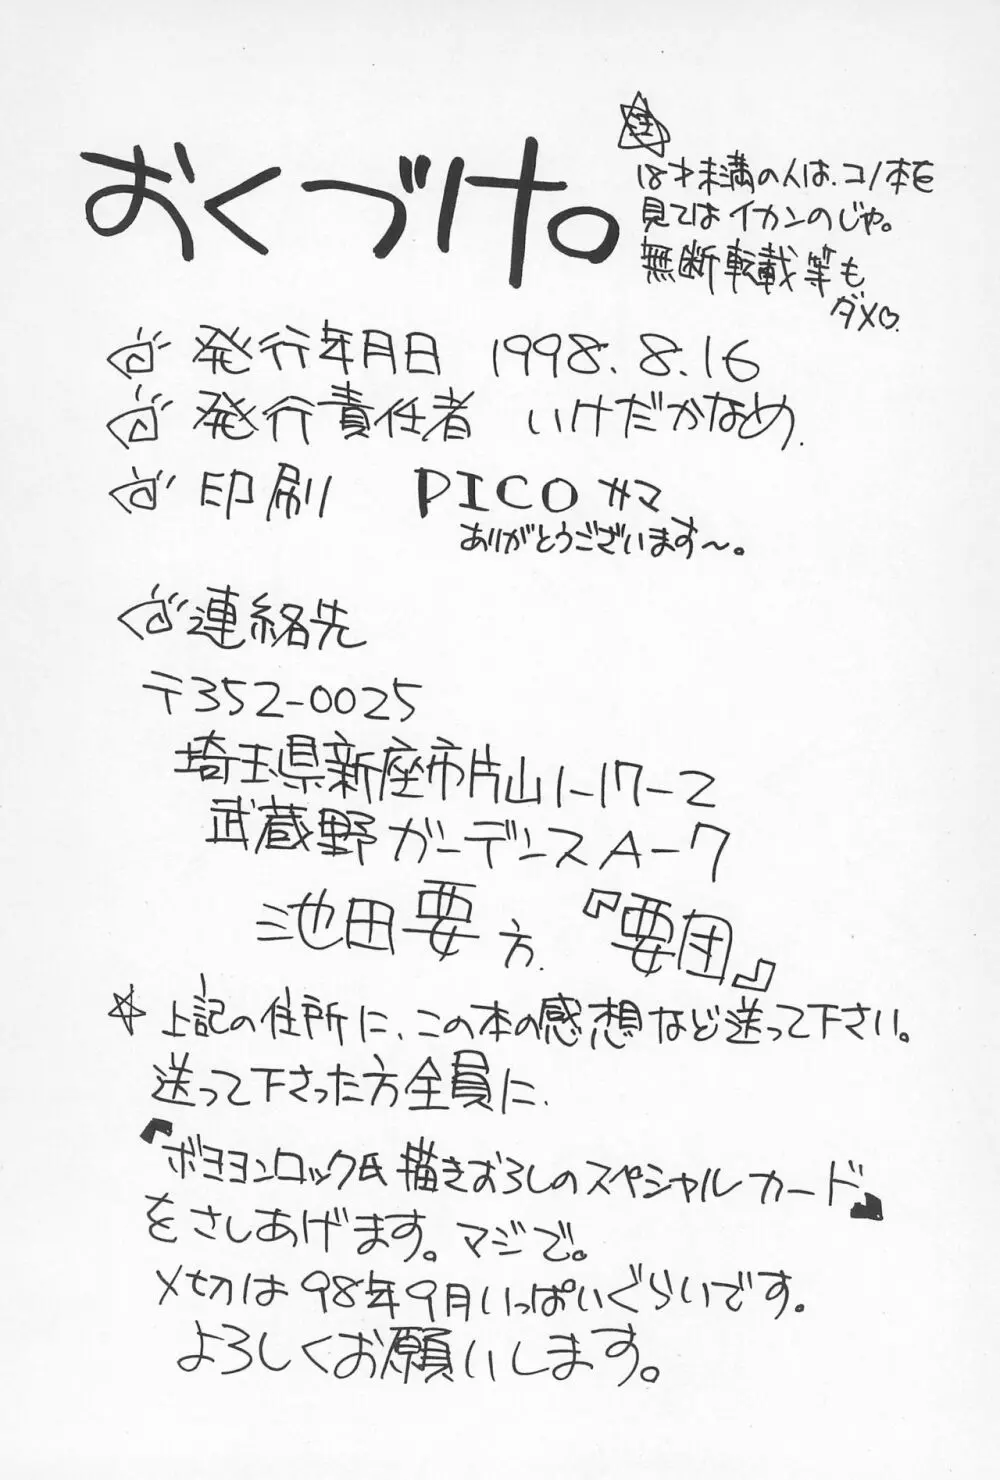 おくづけ。
注
18才未満の人は、コノ本を
見てはイカンのじゃ。
無断転載等も
ダメ♡.
発行年月日 1998.8.16
発行責任者 いけだかなめ.
印刷 PICO サマ
ありがとうございます〜。
連絡先
〒352-0025
埼玉県新座市片山1-17-2
武蔵野ガーデンスA-7
池田要方.『要団』
☆上記の住所に、この本の感想など送って下さい。
送って下さった方全員に、
『ボヨヨンロック氏描きおろしのスペシャルカード』
をさしあげます。マジで。
〆切は98年9月いっぱいぐらいです。
よろしくお願いします。